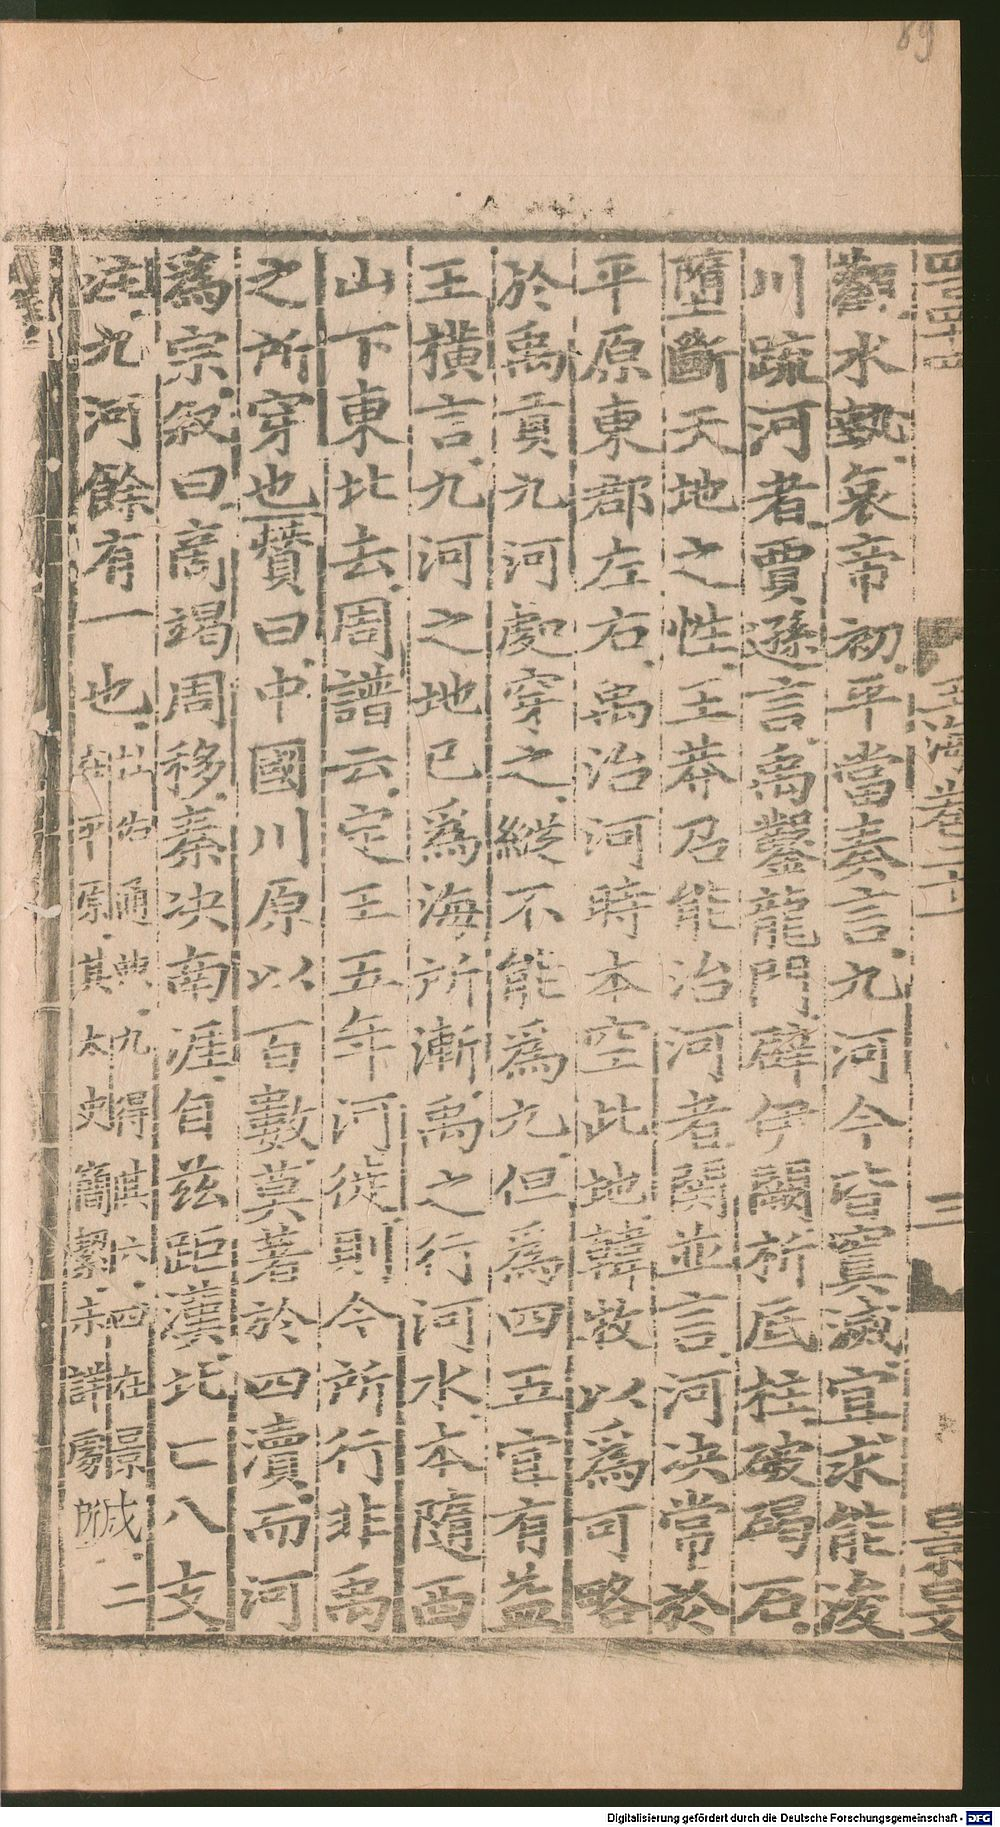 89
玉海卷二十一
三
觀水埶哀帝初平當奏言九河今皆寘滅宜求能浚
川疏河者賈遜言禹鑿龍門辟伊闕析底柱破碣石
墮斷天地之性王莽召能治河者關並言河决常於
平原東郡左右禹治河時本空此地韓牧以爲可略
於禹貢九河處穿之縱不能爲九但爲四五宜有益
王橫言九河之地已爲海所漸禹之行河水本隨西
山下東北去周譜云定王五年河徙則今所行非禹
之所穿也贊曰中國川原以百數莫著於四瀆而河
爲宗叙曰商竭周移秦决南涯自兹距漢北亡八支
注九河餘有一也杜佑通典九得其六四在景成二
在平原其太史簡潔未詳處所
Digitalisierung gefördert durch die Deutsche Forschungsgemeinschaft - DFG